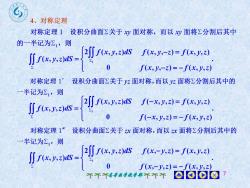 4、对称定理
对称定理 1  设积分曲面Σ关于 xy 面对称，而以 xy 面将Σ分割后其中的
一半记为Σ₁，则
∬_Σ f(x,y,z)dS = { 2∬_Σ₁ f(x,y,z)dS  f(x,y,−z) = f(x,y,z)
0  f(x,y,−z) = −f(x,y,z) .
对称定理 1′  设积分曲面Σ关于 yz 面对称，而以 yz 面将Σ分割后其中的
一半记为Σ₁，则
∬_Σ f(x,y,z)dS = { 2∬_Σ₁ f(x,y,z)dS  f(−x,y,z) = f(x,y,z)
0  f(−x,y,z) = −f(x,y,z) .
对称定理 1″  设积分曲面Σ关于 zx 面对称，而以 zx 面将Σ分割后其中的
一半记为Σ₁，则
∬_Σ f(x,y,z)dS = { 2∬_Σ₁ f(x,y,z)dS  f(x,−y,z) = f(x,y,z)
0  f(x,−y,z) = −f(x,y,z) .
7